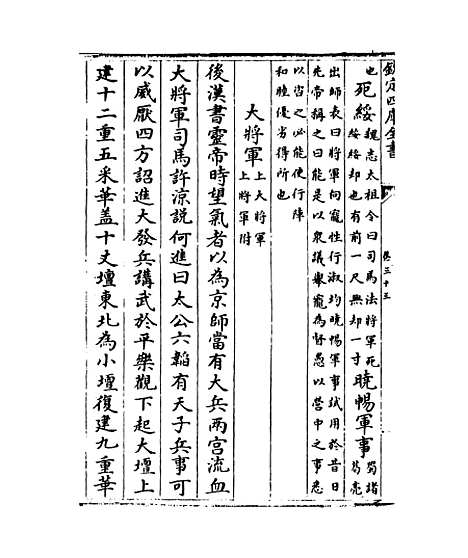 欽定四庫全書
卷三十三
也死綏魏志太祖令曰司馬法將軍死
綏綏却也有前一尺無却一寸曉暢軍事蜀諸
葛亮
出師表曰將軍向寵性行淑均曉暢軍事試用於昔日
先帝稱之曰能是以衆議舉寵為督愚以營中之事悉
以咨之必能使行陣
和睦優劣得所也
大將軍上大將軍
上將軍附
後漢書靈帝時望氣者以為京師當有大兵兩宮流血
大將軍司馬許涼說何進曰太公六韜有天子兵事可
以威厭四方詔進大發兵講武於平樂觀下起大壇上
建十二重五采華盖十丈壇東北為小壇復建九重華